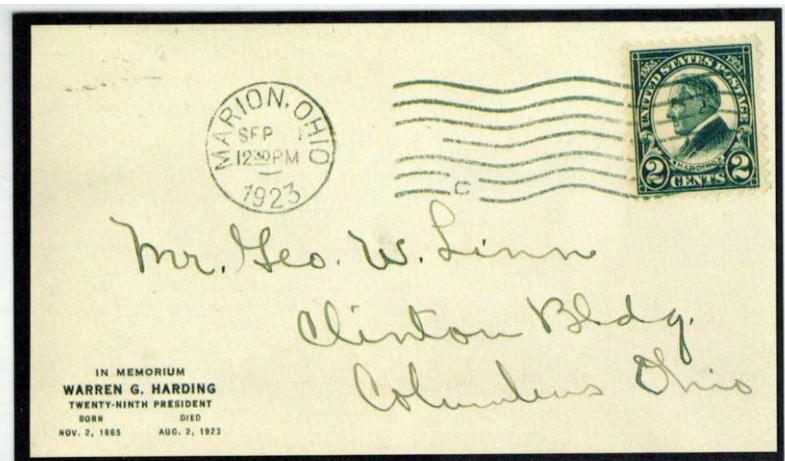 MARION, OHIO
SEP 1
12 30 PM
1923
C
1865 1923
UNITED STATES POSTAGE
HARDING
2 CENTS 2
Mr. Geo. W. Linn
Clinton Bldg.
Columbus Ohio
IN MEMORIUM
WARREN G. HARDING
TWENTY-NINTH PRESIDENT
BORN DIED
NOV. 2, 1865 AUG. 2, 1923